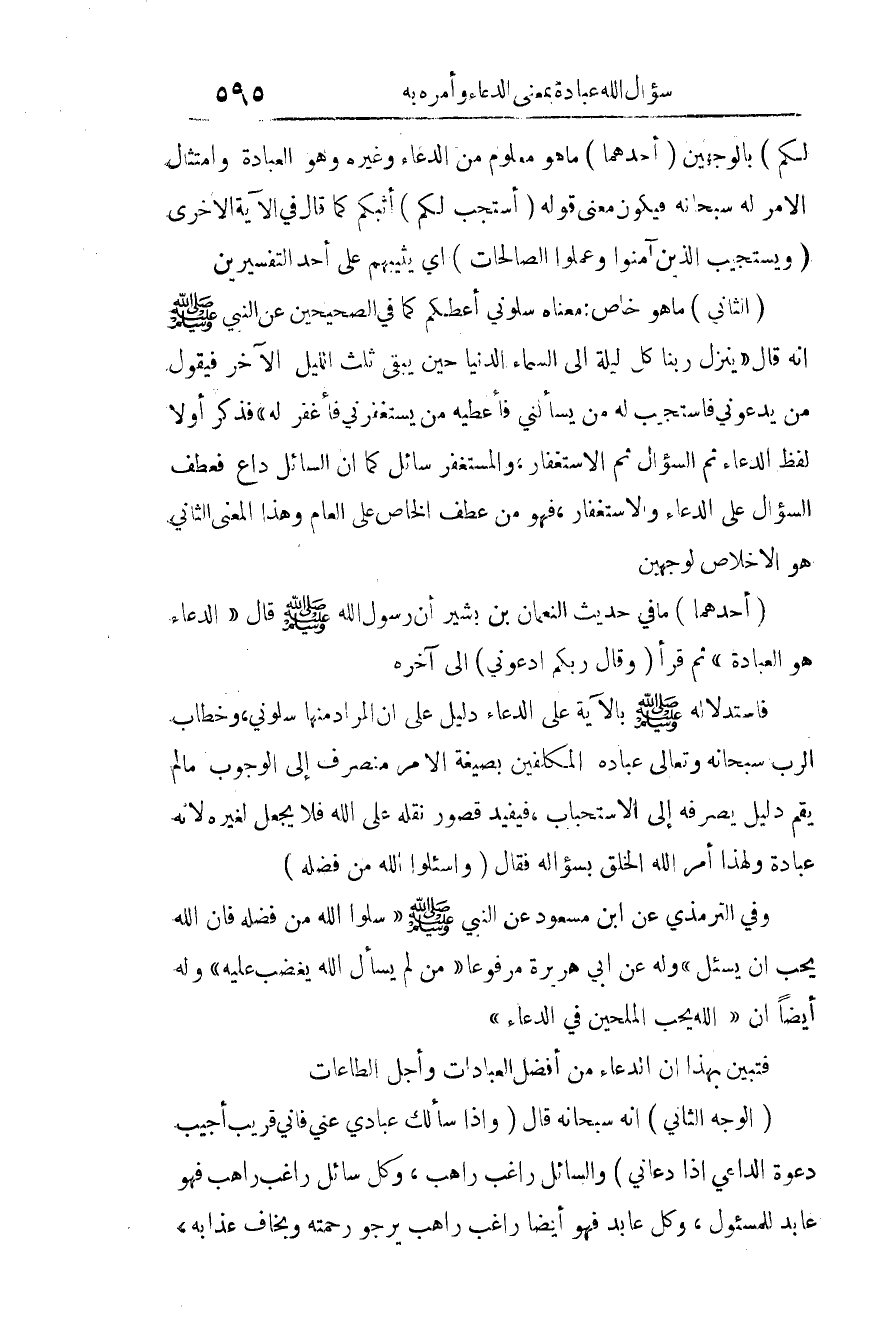 سؤال الله عبادة بمعنى الدعاء وأمره به ٥٩٥
لكم ) بالوجهين ( أحدهما ) ماهو معلوم من الدعاء وغيره وهو العبادة وامتثال
الامر له سبحانه فيكون معنى قوله ( أستجب لكم ) أثبكم كما قال في الآية الأخرى
( ويستجيب الذين آمنوا وعملوا الصالحات ) اي يثيبهم على أحد التفسيرين
( الثاني ) ماهو خاص : معناه سلوني أعطكم كما في الصحيحين عن النبي ﷺ
انه قال « ينزل ربنا كل ليلة الى السماء الدنيا حين يبقى ثلث الليل الآخر فيقول
من يدعوني فاستجيب له من يسألني فأعطيه من يستغفرني فأغفر له » فذكر أولا
لفظ الدعاء ثم السؤال ثم الاستغفار ، والمستغفر سائل كما ان السائل داع فعطف
السؤال على الدعاء والاستغفار ، فهو من عطف الخاص على العام وهذا المعنى الثاني
هو الاخلاص لوجهين
( أحدهما ) مافي حديث النعمان بن بشير أن رسول الله ﷺ قال « الدعاء
هو العبادة » ثم قرأ ( وقال ربكم ادعوني ) الى آخره
فاستدلاله ﷺ بالآية على الدعاء دليل على ان المراد منها سلوني ، وخطاب
الرب سبحانه وتعالى عباده المكلفين بصيغة الامر منصرف إلى الوجوب مالم
يقم دليل يصرفه إلى الاستحباب ، فيفيد قصور نقله على الله فلا يجعل لغيره لانه
عبادة ولهذا أمر الله الخلق بسؤاله فقال ( واسئلوا الله من فضله )
وفي الترمذي عن ابن مسعود عن النبي ﷺ « سلوا الله من فضله فان الله
يحب ان يسئل » وله عن ابي هريرة مرفوعا « من لم يسأل الله يغضب عليه » وله
أيضاً ان « الله يحب الملحين في الدعاء »
فتبين بهذا ان الدعاء من أفضل العبادات وأجل الطاعات
( الوجه الثاني ) انه سبحانه قال ( واذا سألك عبادي عني فاني قريب أجيب
دعوة الداعي اذا دعاني ) والسائل راغب راهب ، وكل سائل راغب راهب فهو
عابد للمسئول ، وكل عابد فهو أيضا راغب راهب يرجو رحمته ويخاف عذابه ،